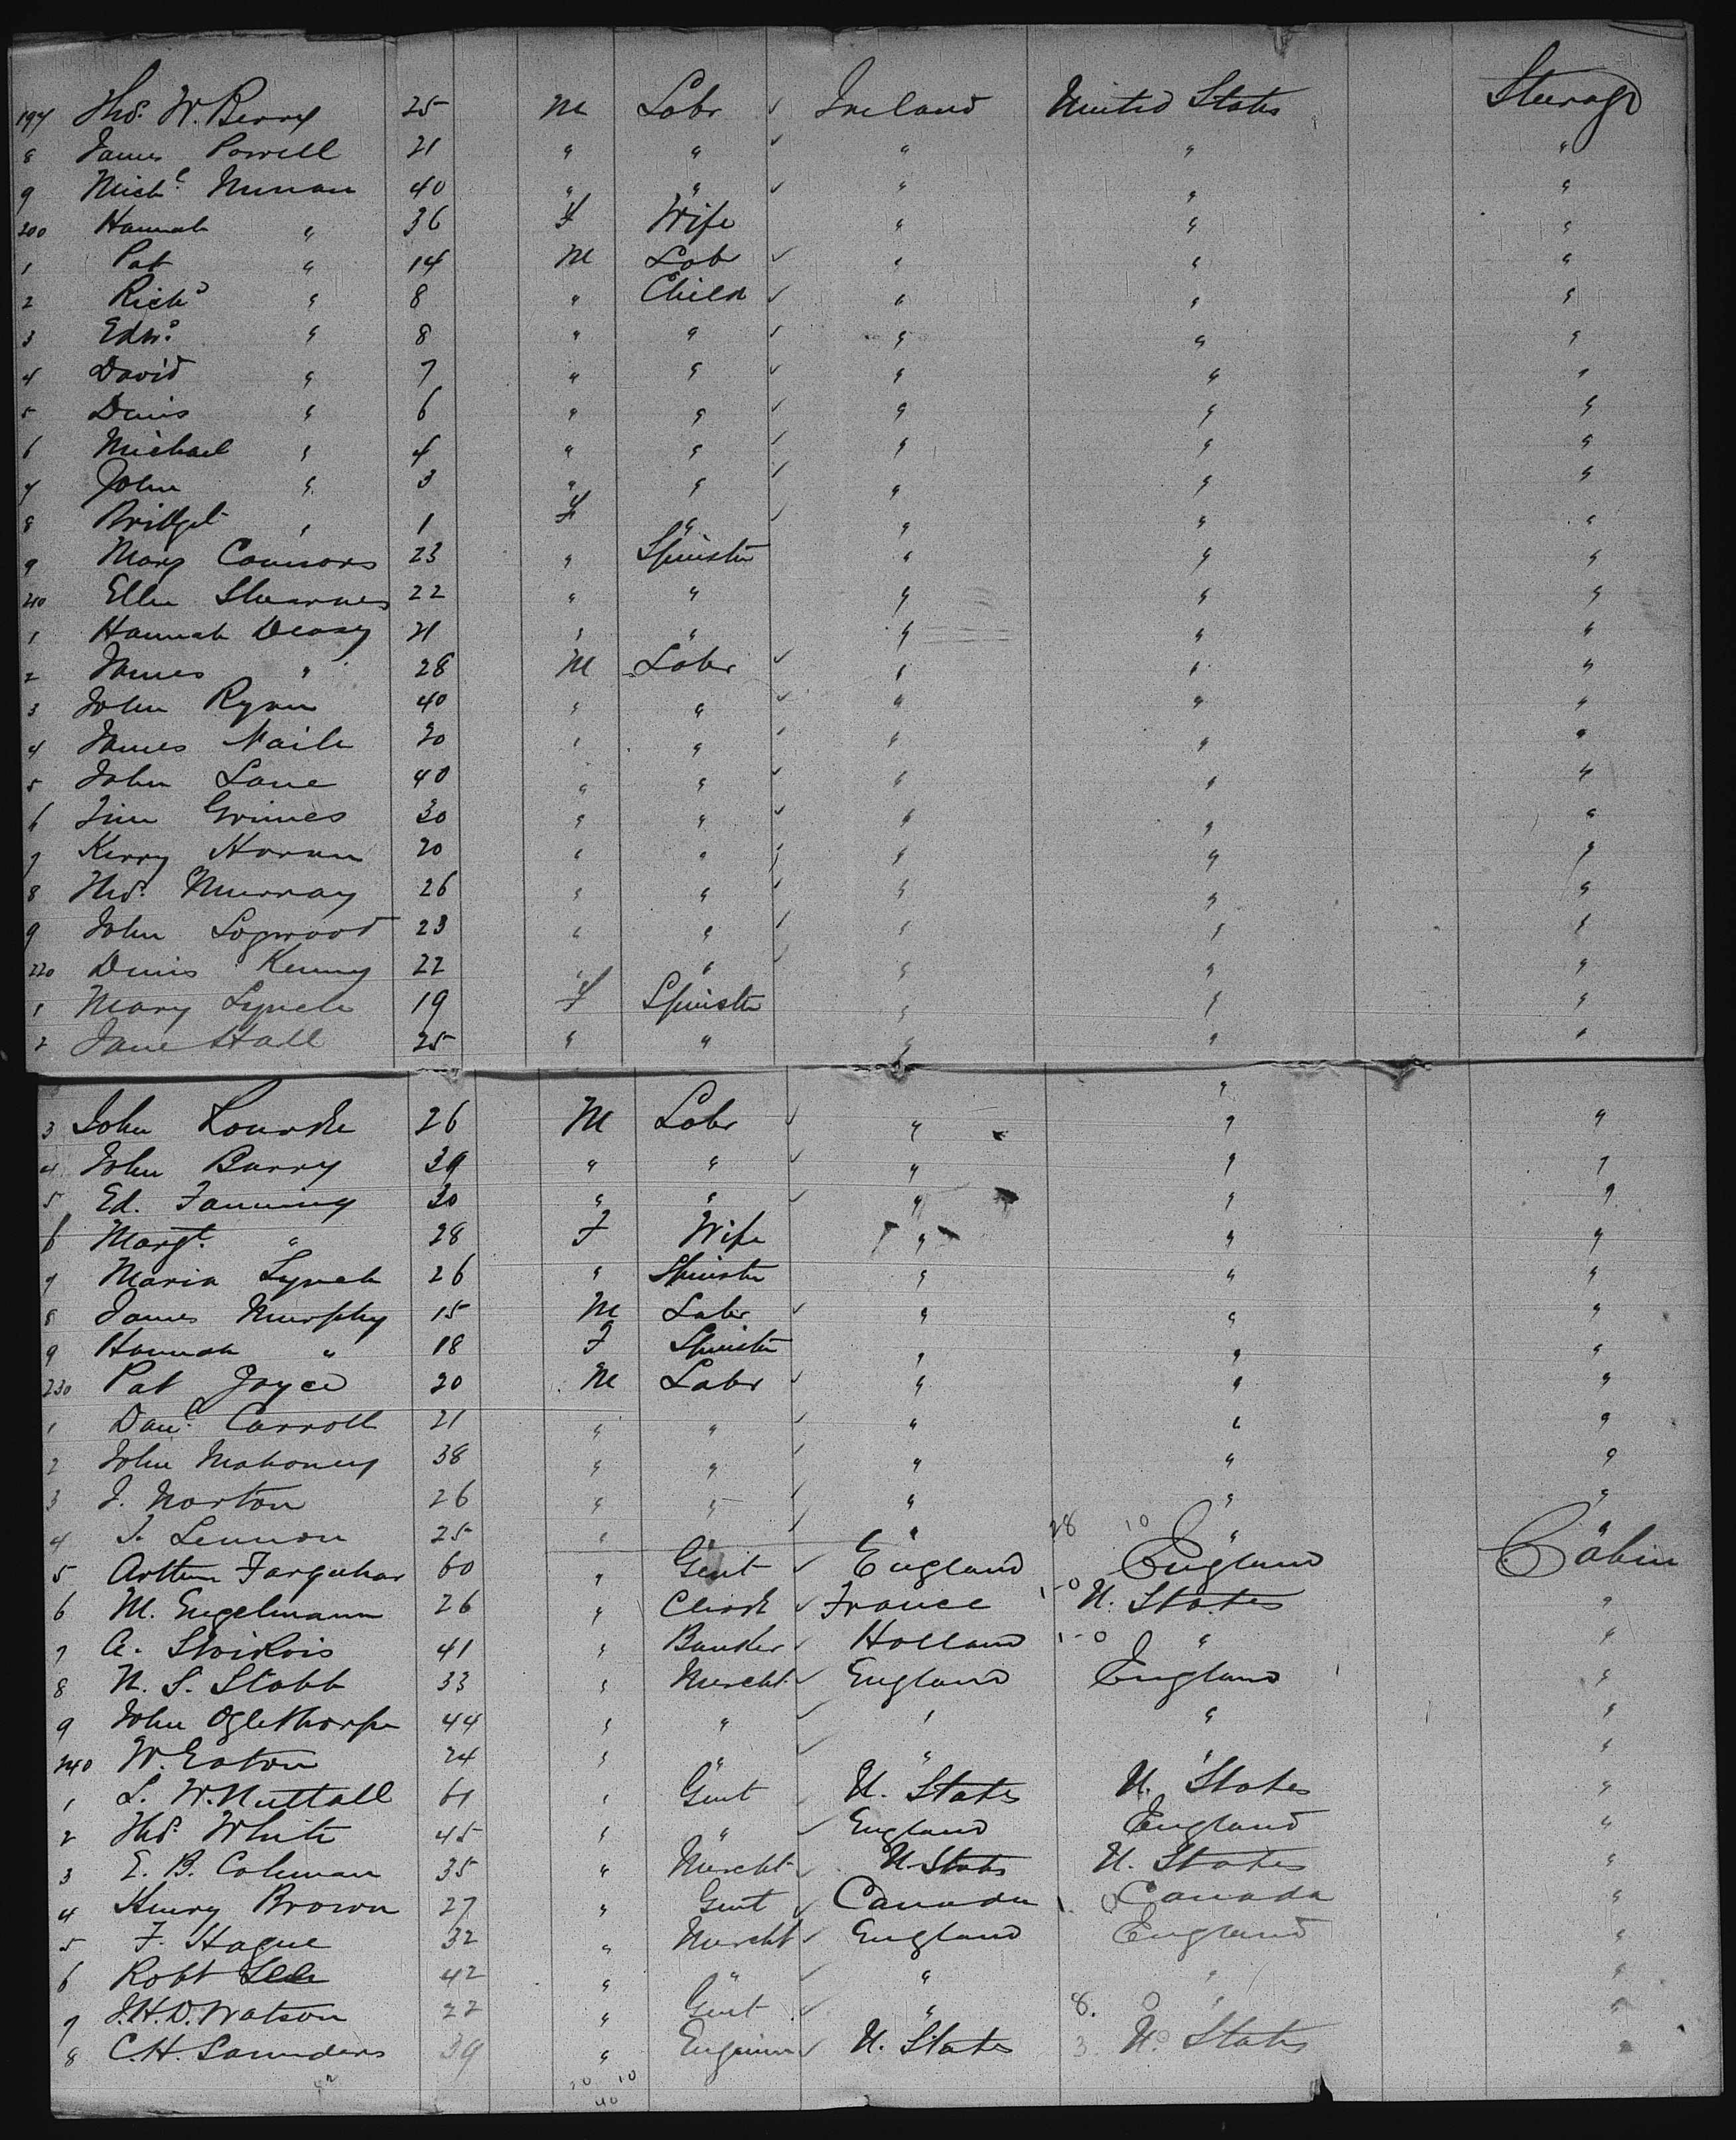 197 Thos. W. Berry 25 M Labr ✓ Ireland United States Steerage
8 James Powell 21 " " ✓ " " "
9 Michl. Nunan 40 " " ✓ " " "
200 Hannah " 36 F Wife " " "
1 Pat " 14 M Labr ✓ " " "
2 Richd " 8 " Child ✓ " " "
3 Edwd " 8 " " ✓ " " "
4 David " 7 " " ✓ " " "
5 Denis " 6 " " ✓ " " "
6 Michael " 4 " " ✓ " " "
7 John " 3 " " ✓ " " "
8 Bridget " 1 F " ✓ " " "
9 Mary Connors 23 " Spinster " " "
210 Ellen 22 " " " " "
1 Hannah Deasy 21 " " " " "
2 James " 28 M Labr ✓ " " "
3 John Ryan 40 " " ✓ " " "
4 James 20 " " ✓ " " "
5 John Lane 40 " " ✓ " " "
6 Tim Grimes 30 " " ✓ " " "
7 Kerry Horan 20 " " ✓ " " "
8 Thos. Murray 26 " " ✓ " " "
9 John Logwood 23 " " ✓ " " "
220 Denis Kenny 22 " " ✓ " " "
1 Mary Lynch 19 F Spinster " " "
2 Jane Hall 25 " " " " "
3 John Rourke 26 M Labr ✓ " " "
4 John Barry 39 " " ✓ " " "
5 Ed. Fanning 30 " " ✓ " " "
6 Margt. " 28 F Wife " " "
7 Maria Lynch 26 " Spinster " " "
8 James Murphy 15 M Labr ✓ " " "
9 Hannah " 18 F Spinster " " "
230 Pat Joyce 20 M Labr ✓ " " "
1 Danl. Carroll 21 " " ✓ " " "
2 John Mahoney 38 " " ✓ " " "
3 J. Norton 26 " " ✓ " " "
4 J. Lennon 25 " " ✓ " 28 10 " "
5 Arthur Farquhar 60 " Gent ✓ England England Cabin
6 M. Engelmann 26 " Clerk ✓ France 1-0 U. States "
7 A. 41 " Banker ✓ Holland 1-0 " "
8 N. S. Stabb 33 " Mercht ✓ England England "
9 John Oglethorpe 44 " " ✓ " " "
240 W. Eaton 24 " " ✓ " " "
1 L. W. Nuttall 61 " Gent ✓ U. States U. States "
2 Thos. White 45 " " ✓ England England "
3 E. B. Coleman 35 " Mercht ✓ U. States U. States "
4 Henry Brown 27 " Gent ✓ Canada Canada "
5 F. Hague 32 " Mercht ✓ England England "
6 Robt Lee 42 " " ✓ " " "
7 J.H.D. Watson 22 " Gent ✓ " 8. 0 " "
8 C.H. Saunders 39 " Engineer ✓ U. States 3. U. States "
20 10
40